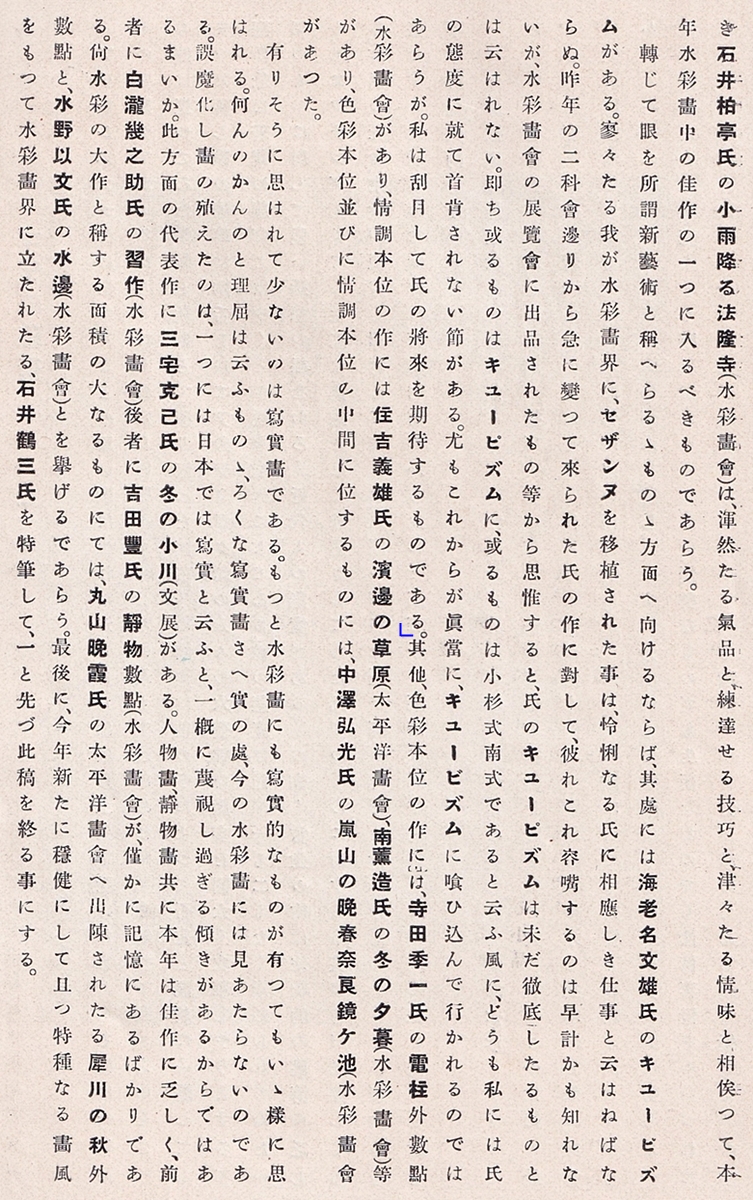 き石井柏亭氏の小雨降る法隆寺(水彩畫會)は、渾然たる氣品と、練達せる技巧と、津々たる情味と相俟つて、本
年水彩畫中の佳作の一つに入るべきものであらう。
轉じて眼を所謂新藝術と稱へらるゝものゝ方面へ向けるならば、其處には海老名文雄氏のキユービズ
ムがある。寥々たる我が水彩畫界に、セザンヌを移植された事は、怜悧なる氏に相應しき仕事と云はねばな
らぬ。昨年の二科會邊りから急に變つて來られた氏の作に對して、彼れこれ容嘴するのは早計かも知れな
いが、水彩畫會の展覽會に出品されたもの等から思惟すると、氏のキユービズムは未だ徹底したるものと
は云はれない。即ち或るものはキユービズムに、或るものは小杉式南式であると云ふ風に、どうも私には氏
の態度に就て首肯されない節がある。尤もこれからが眞當に、キユービズムに喰ひ込んで行かれるのでは
あらうが。私は刮目して氏の將來を期待するものである。其他、色彩本位の作には、寺田季一氏の電柱外數點
(水彩畫會)があり、情調本位の作には住吉義雄氏の濱邊の草原(太平洋畫會)、南薰造氏の冬の夕暮(水彩畫會)等
があり、色彩本位並びに情調本位の中間に位するものには、中澤弘光氏の嵐山の晩春奈良鏡ケ池(水彩畫會
があつた。
有りそうに思はれて少ないのは寫實畫である。もつと水彩畫にも寫實的なものが有つてもいゝ樣に思
はれる。何んのかんのと理屈は云ふものゝ、ろくな寫實畫さへ実の處、今の水彩畫には見あたらないのであ
る。誤魔化し畫の殖えたのは、一つには日本では寫實と云ふと、一概に蔑視し過ぎる傾きがあるからではあ
るまいか。此方面の代表作に三宅克己氏の冬の小川(文展)がある。人物畫、靜物畫共に本年は佳作に乏しく、前
者に白瀧幾之助氏の習作(水彩畫會)後者に吉田豐氏の靜物數點(水彩畫會)が、僅かに記憶にあるばかりであ
る。尙水彩の大作と稱する面積の大なるものにては、丸山晩霞氏の太平洋畫會へ出陳されたる犀川の秋外
數點と、水野以文氏の水邊(水彩畫會)とを擧げるであらう。最後に、今年新たに穩健にして且つ特種なる畫風
をもつて水彩畫界に立たれたる、石井鶴三氏を特筆して、一と先づ此稿を終る事にする。